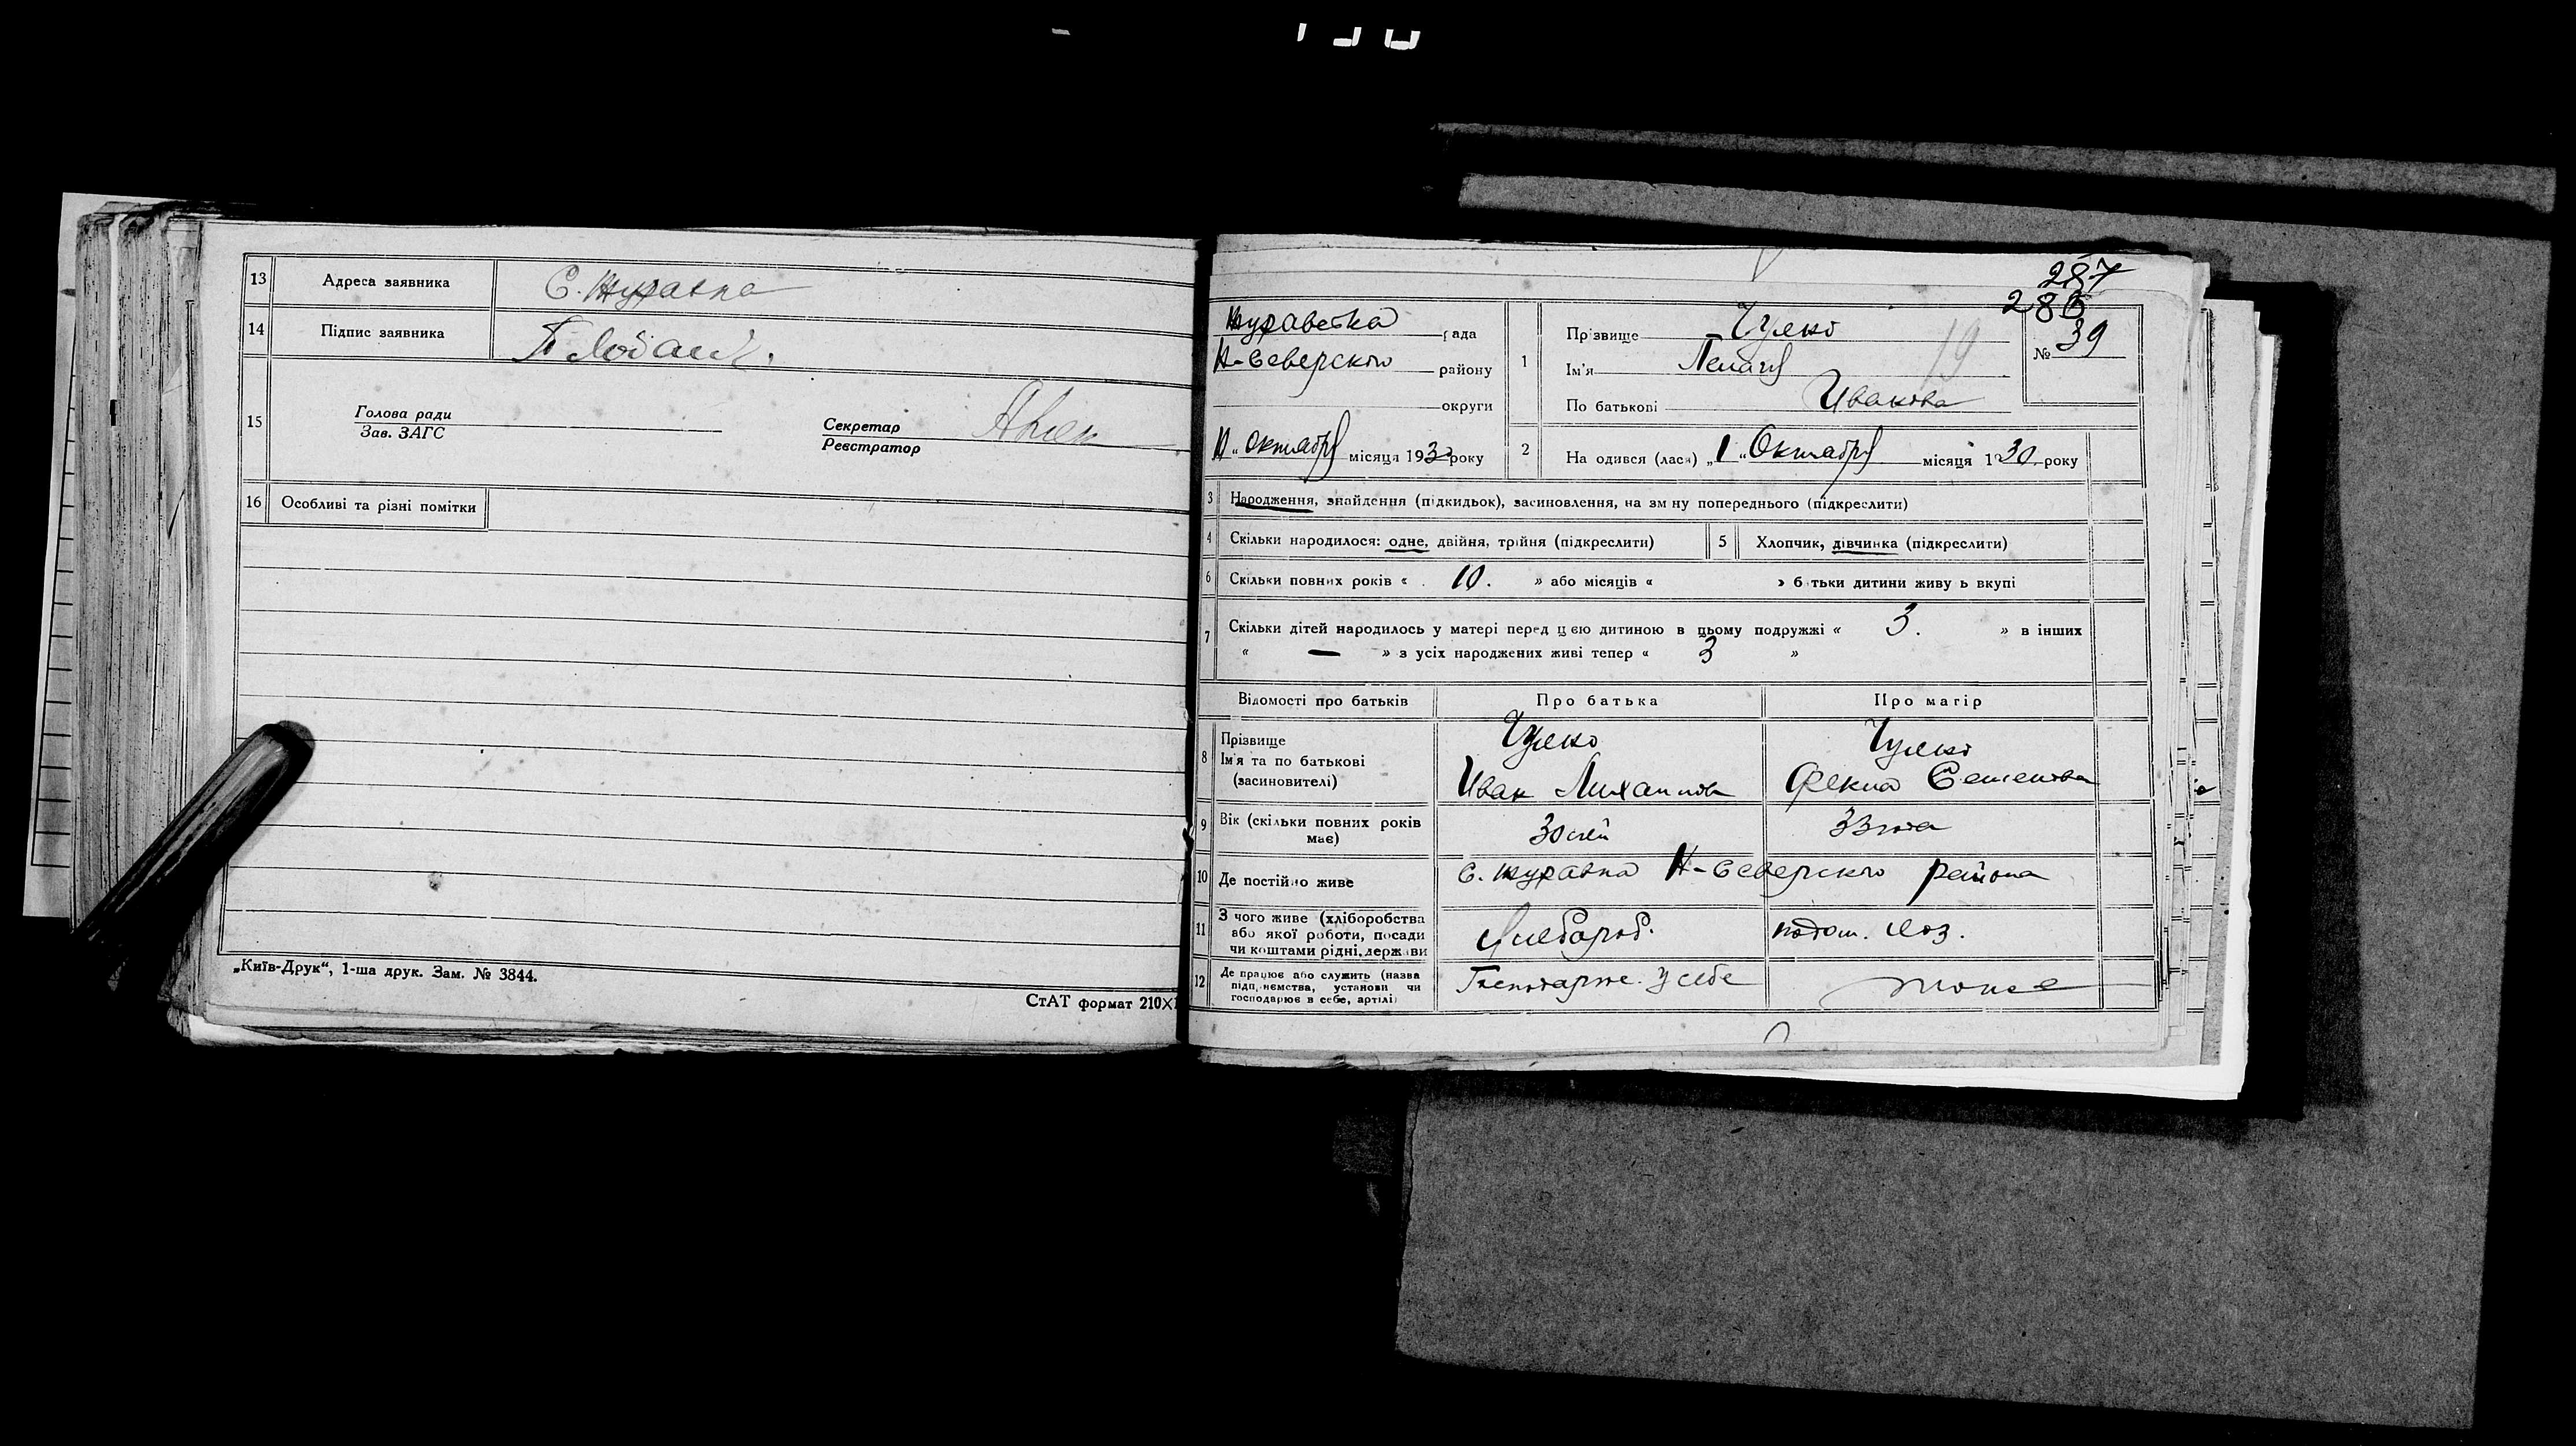 13 Адреса заявника С. Журавка
14 Підпис заявника
15 Голова ради
Зав. ЗАГС
Секретар
Реєстратор
16 Особливі та різні помітки
„Київ-Друк“, 1-ша друк. Зам. № 3844.
СтАТ формат 210Х
287
286
рада
Н-Северского району
округи
октября місяца 193 року
1 Прізвище Чулко
Ім'я
По батькові Иванова
№ 39
2 На одився (лася) „1“ Октября місяця 1930 року
3 Народження, знайдення (підкидьок), засиновлення, на зм ну попереднього (підкреслити)
4 Скільки народилося: одне, двійня, трійня (підкреслити)
5 Хлопчик, дівчинка (підкреслити)
6 Скільки повних років « 10. » або місяців « » б тьки дитини живу ь вкупі
7 Скільки дітей народилось у матері перед цею дитиною в цьому подружжі « 3. » в інших
« — » з усіх народжених живі тепер « 3 »
Відомості про батьків Про батька Про матір
8 Прізвище Чулко Чулко
Ім'я та по батькові Иван Михаилов Фекла Семенова
(засиновителі)
9 Вік (скільки повних років 30 лет 33 года
має)
10 Де постійно живе с. Журавка Н-Северского района
11 З чого живе (хліборобства
або якої роботи, посади Хлебороб.
чи коштами рідні, держави
12 Де працює або служить (назва
підприємства, установи чи у себе тоже
господарює в себе, артілі)